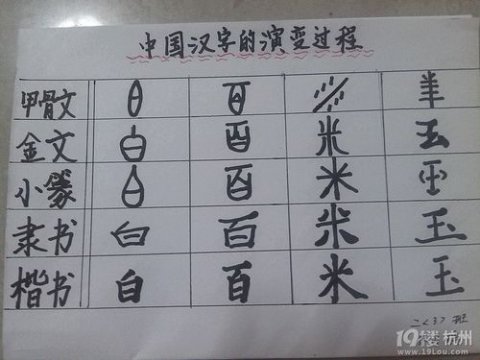 中国汉字的演变过程
甲骨文
金文 白 米 玉
小篆 米
隶书 白 百 米 玉
楷书 白 百 米 玉
二<3>班
19楼 杭州
www.19Lou.com